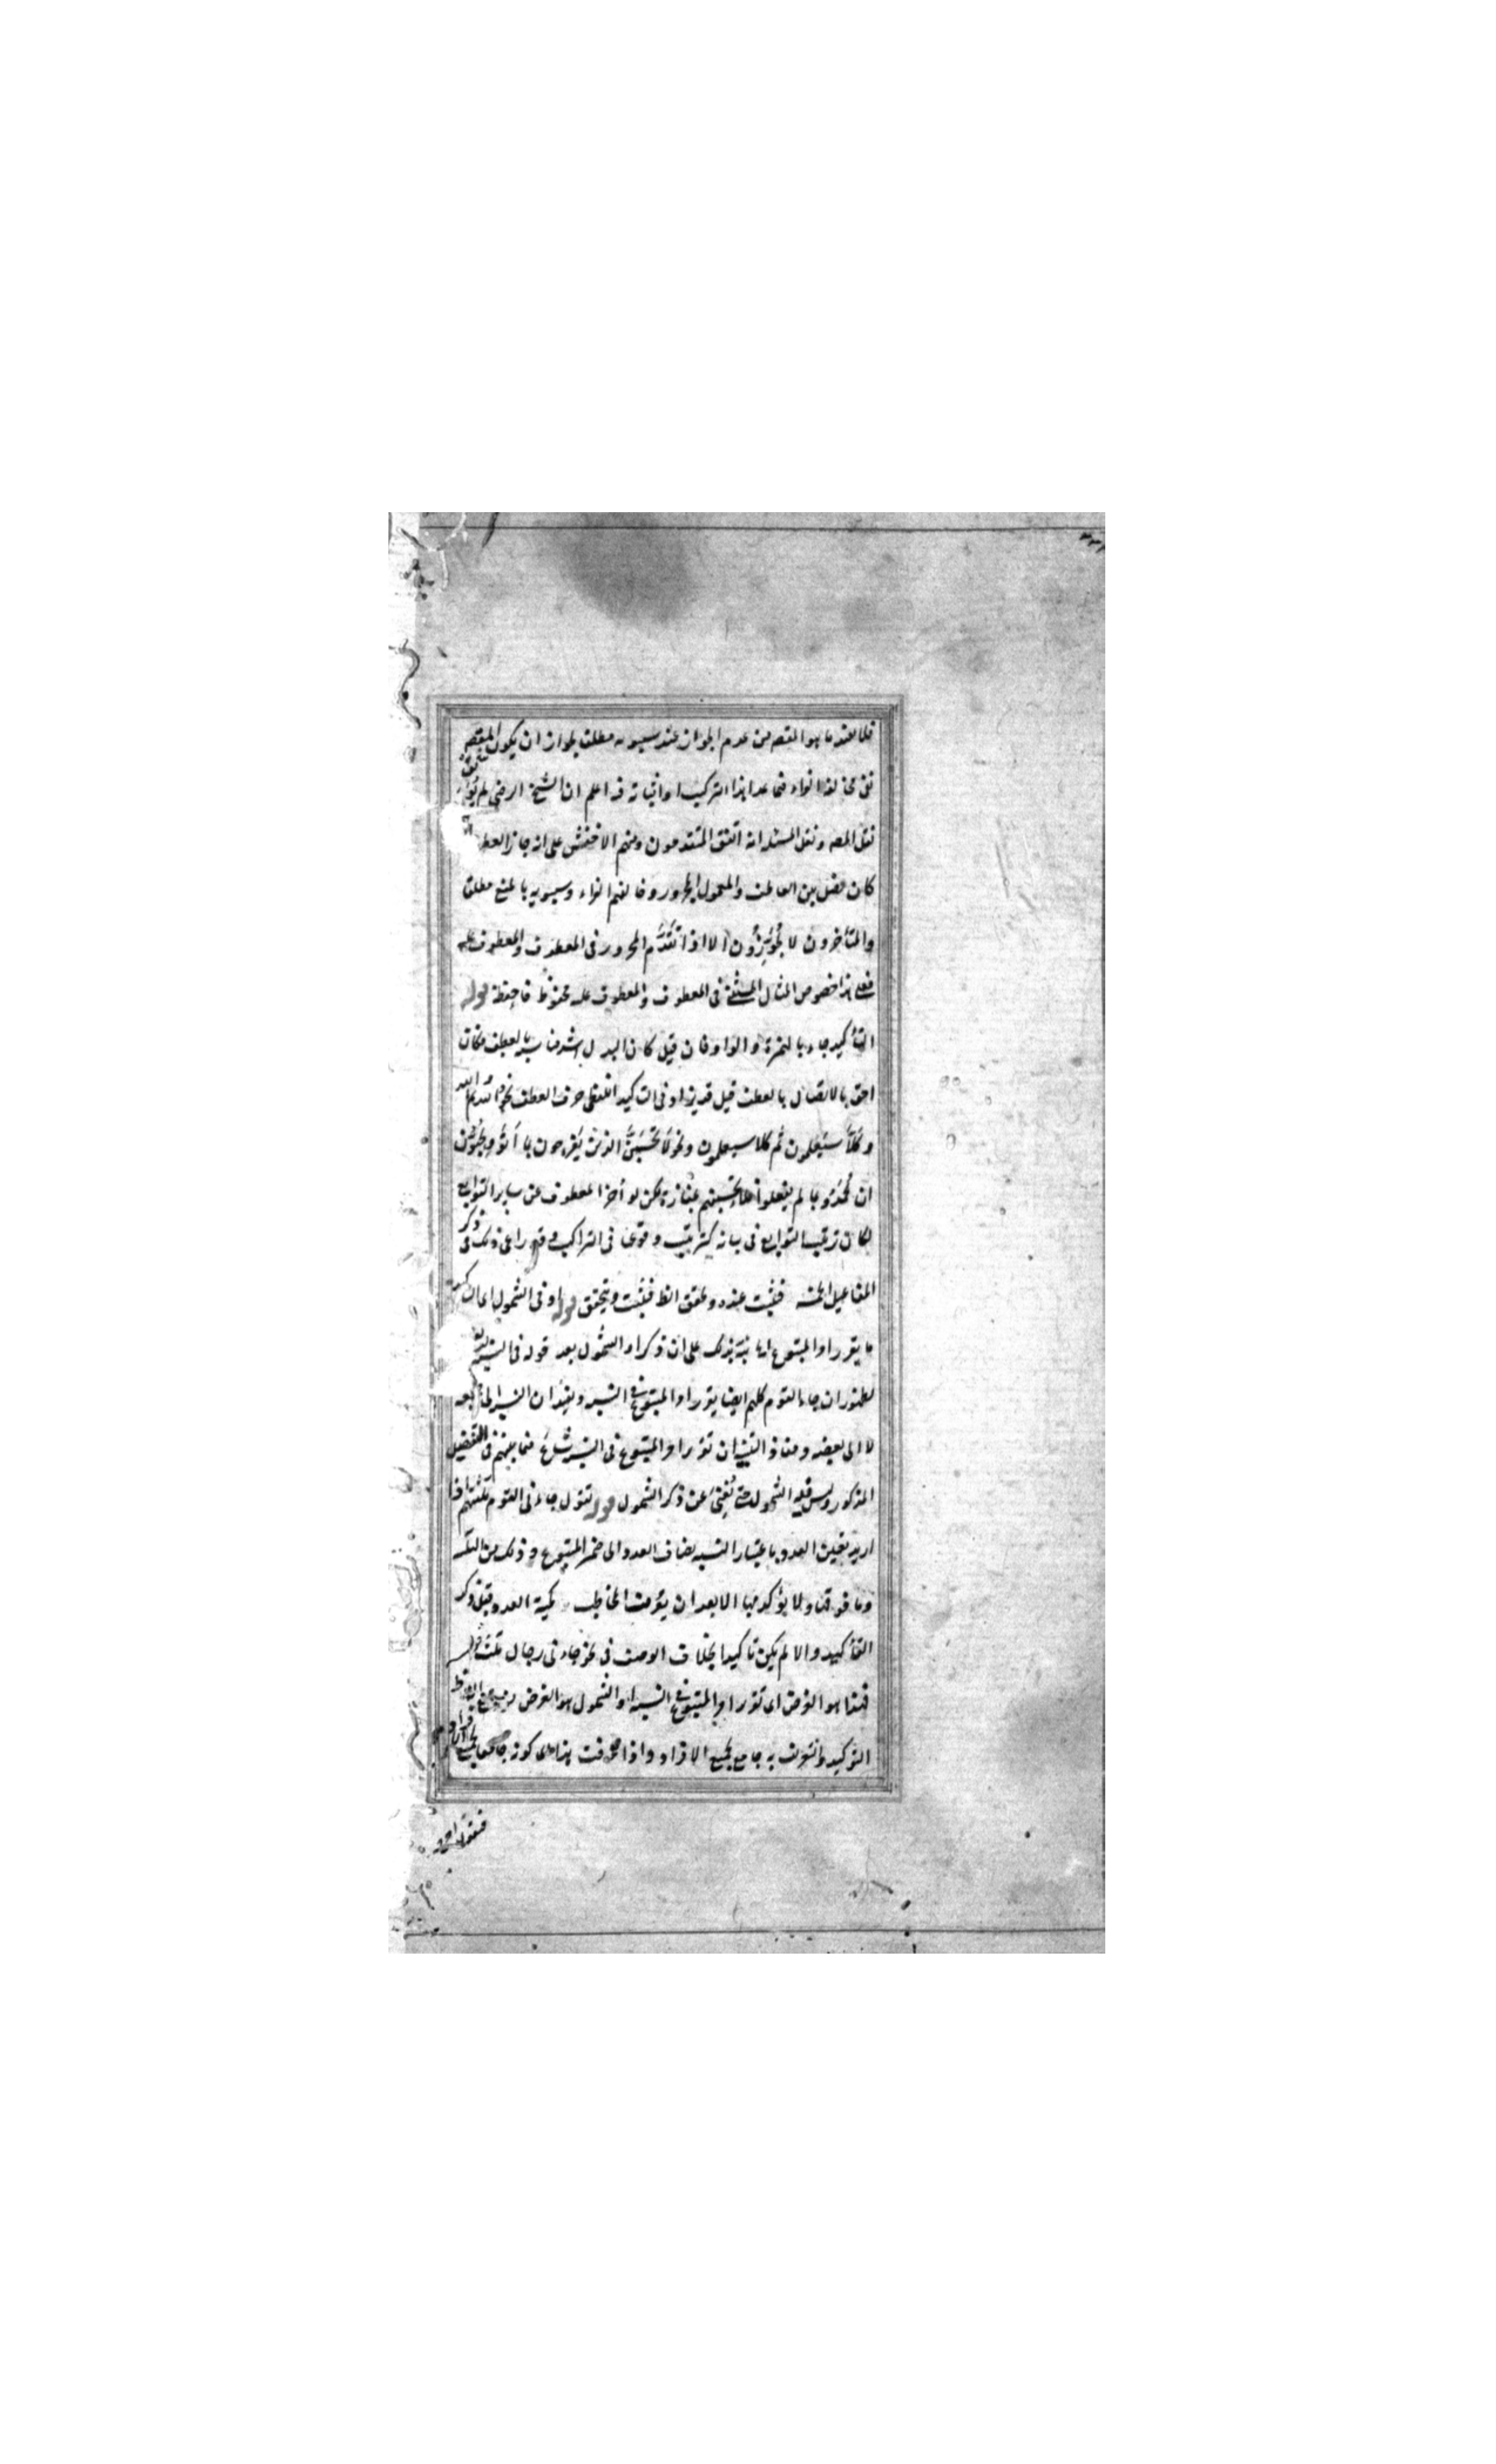 فلا يفيد ما هو المقصد من عدم الجواز عند سيبويه مطلقا لجواز ان يكون المقصد
نفى مخالفة الفراء فيما عدا هذا التركيب او اثباته فيه اعلم ان الشيخ الرضى لم يوافق
نقل المصه ونقل المسئلة انه اتفق المتقدمون ومنهم الاخفش على انه جاز العطف
كان فصل بين العاطف والمعمول المجرور وخالفهم الفراء وسيبويه بالمنع مطلقا
والمتأخرون لا يُجَوِّزُون الا اذا تَقَدَّم المجرور فى المعطوف والمعطوف عليه
فعلى هذا خصوص المثال المستثنى فى المعطوف والمعطوف عليه محفوظ فاحفظه قوله
التأكيد جاء بالهمزة والواو فان قيل كان البدل اشد مناسبة بالعطف فكان
احق بالاتصال بالعطف قيل قد يزاد فى التاكيد اللفظى حرف العطف نحو والله ثم والله
وكَلَّا سَيَعلمون ثم كلا سيعلمون ونحو لا تَحْسَبَنَّ الذين يَفرحون بما أَتَوْا ويُحِبُّون
ان يُحْمَدُوا بما لم يفعلوا فلا تَحْسَبَنَّهم بمفازة لكن لو أخر المعطوف عن ساير التوابع
لكان ترتيب التوابع فى بيانه كترتيب وقوعها فى التراكيب وقد راعى ذلك فى ذكر
المفاعيل الخمسة فيثبت عنده ويحقق الظ فيثبت ويتحقق قوله او فى الشمول اى ان
ما يقرر امر المتبوع نبه بذلك على ان ذكر امر الشمول بعد قوله فى النسبة
لظهور ان جاء القوم كلهم ايضا يقرر امر المتبوع فى النسبة ويفيد ان النسبة الى
لا الى بعضه ومنافاة التنبيه ان تقرر امر المتبوع فى النسبة شاع فيما بينهم فى التفصيل
المذكور وليس فيه الشمول حتى يُغْنِىَ عن ذكر الشمول قوله تقول جاءنى القوم ثلثتهم اذا
اريد تعيين العدد باعتبار النسبة يضاف العدد الى ضمير المتبوع وذلك من الثلثة
وما فوقها ولا يؤكد بها الا بعد ان يعرف المخاطب كمية العدد قبل ذكر
التأكيد والا لم يكن تاكيدا بخلاف الوصف فى نحو جاءنى رجال ثلثة
فهذا هو الغرض اى تقرر امر المتبوع فى النسبة او الشمول هو الغرض من جميع الفاظ
التوكيد والتعريف به جامع لجميع الافراد واذا عرفت هذا اى كونه جامعا لجميع افراده
فنقول اجر